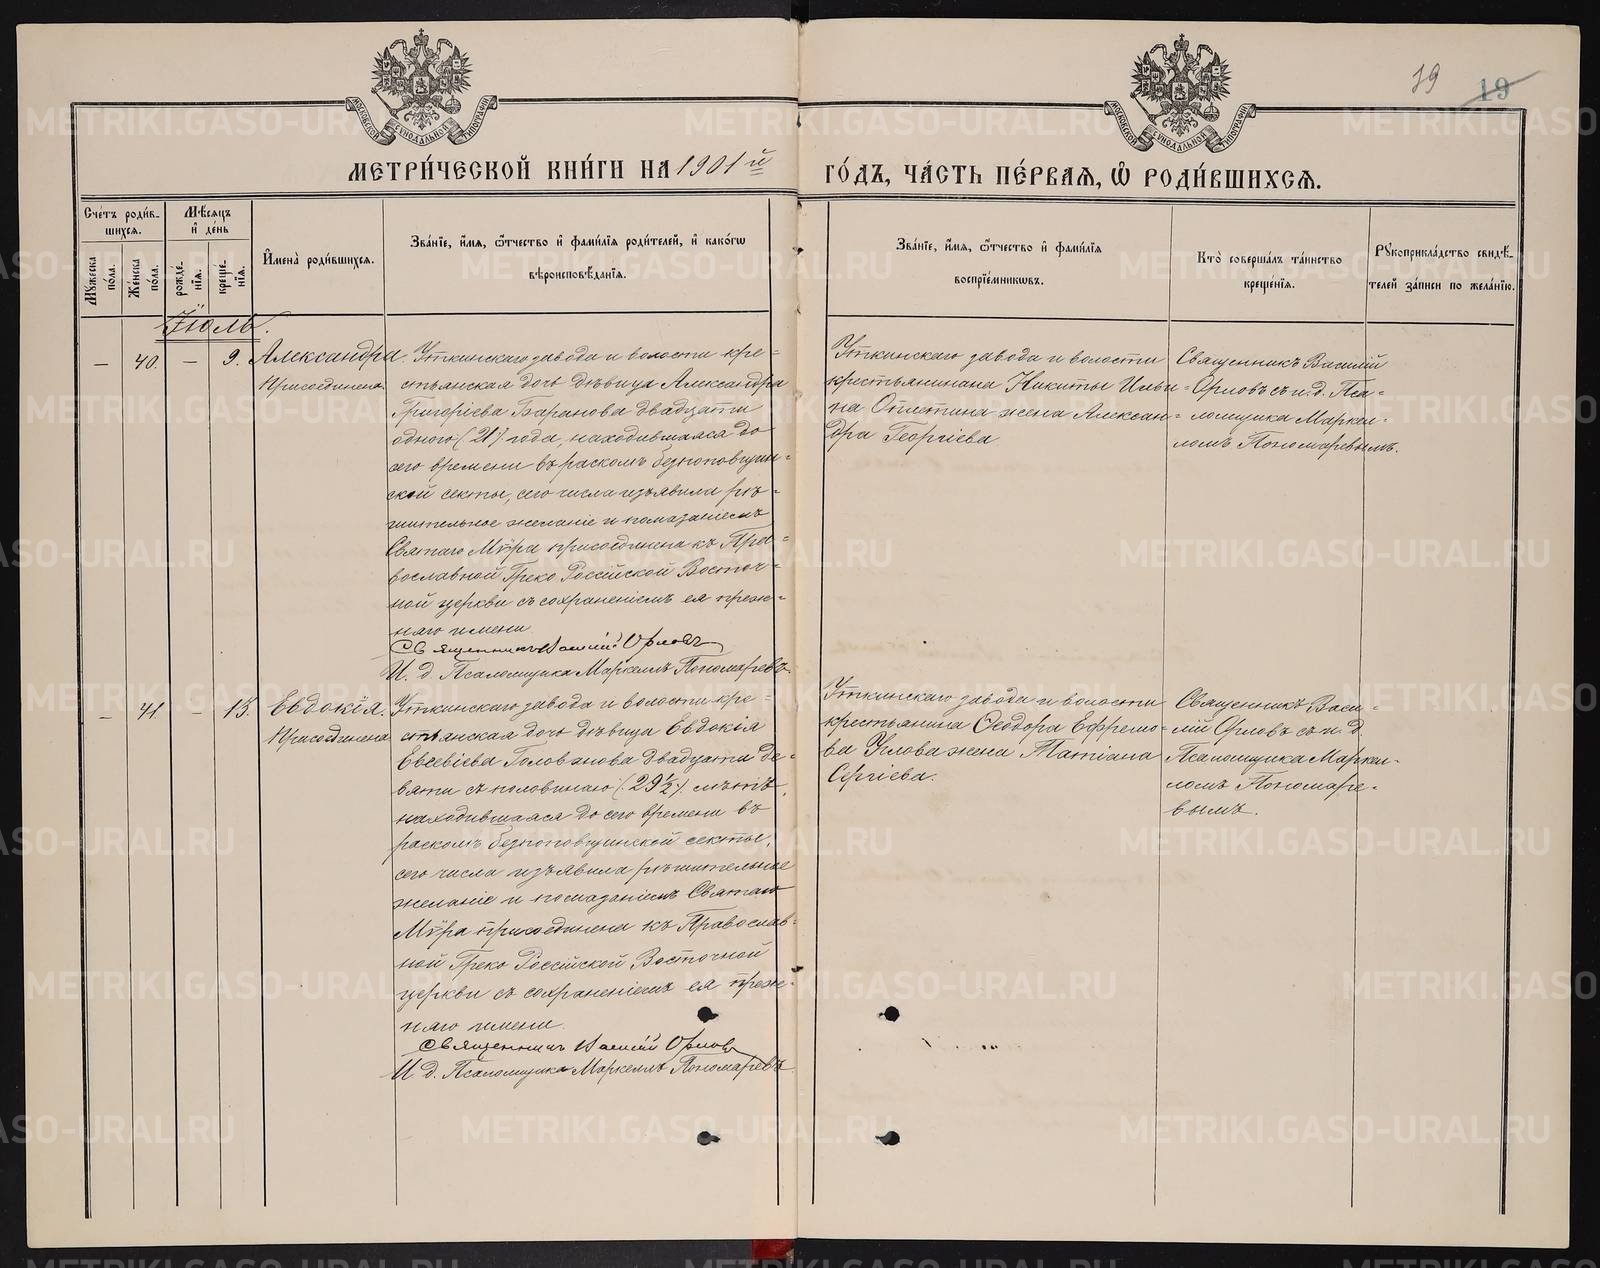 19 19
МОСКОВСКОЙ СѴНОДАЛЬНОЙ ТИПОГРАФІИ
МОСКОВСКОЙ СѴНОДАЛЬНОЙ ТИПОГРАФІИ
МЕТРИ́ЧЕСКОЙ КНИ́ГИ НА 1901й ГО́ДЪ, ЧА́СТЬ ПЕ́РВАѦ, Ѡ҆ РОДИ́ВШИХСѦ.
Сче́тъ роди́в-
шихсѧ.
Мꙋ́жеска по́ла.
Же́нска по́ла.
Мѣ́сѧцъ
и҆ де́нь
рожде́-нїѧ.
креще́-нїѧ.
И҆мена̀ роди́вшихсѧ.
Зва́нїе, и҆́мѧ, ѻ҆́тчество и҆ фами́лїѧ роди́телей, и҆ како́гѡ
вѣроисповѣ́данїѧ.
Зва́нїе, и҆́мѧ, ѻ҆́тчество и҆ фами́лїѧ
воспрїе́мникѡвъ.
Кто̀ соверша́лъ та́инство
креще́нїѧ.
Рꙋкоприкла́дство свидѣ́-
телей за́писи по жела́нїю.
Іюль.
— 40. — 9. Александра.
Присоединена
Уткинскаго завода и волости кре=
стьянская дочь дѣвица Александра
Григоріева Баранова двадцати
одного (21) года, находившаяся до
сего времени въ расколѣ безпоповщин=
ской секты, сего числа изъявила рѣ=
шительное желаніе и помазаніемъ
Святаго Мѵра присоединена къ Пра=
вославной Греко Россійской Восточ=
ной церкви съ сохраненіемъ ея преж=
няго имени
Священникъ Василій Орловъ
И. д. Псаломщика Маркеллъ Пономаревъ.
Уткинскаго завода и волости
крестьянинана Никиты Ильи=
на Оплетина жена Алексан=
дра Георгіева
Священникъ Василій
Орловъ съ и. д. Пса=
ломщика Маркел=
ломъ Пономаревымъ.
— 41. — 15. Евдокія.
Присоединена
Уткинскаго завода и волости кре=
стьянская дочь дѣвица Евдокія
Евсевіева Голованова двадцати де=
вяти съ половиною (29½) лѣтъ,
находившаяся до сего времени въ
расколѣ безпоповщинской секты,
сего числа изъявила рѣшительное
желаніе и помазаніемъ Святаго
Мѵра присоединена къ Православ=
ной Греко Россійской Восточной
церкви съ сохраненіемъ ея преж=
няго имени.
Священникъ Василій Орловъ
И. д. Псаломщика Маркеллъ Пономаревъ
Уткинскаго завода и волости
крестьянина Ѳеодора Ефремо=
ва Углова жена Татіана
Сергіева.
Священникъ Васи=
лій Орловъ съ и. д.
Псаломщика Маркел=
ломъ Пономаре=
вымъ.
METRIKI.GASO-URAL.RU